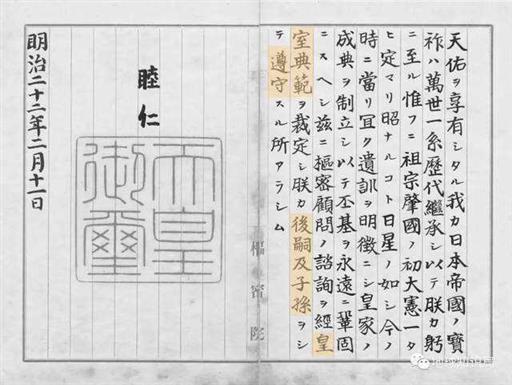 天佑ヲ享有シタル我カ日本帝國ノ寶
祚ハ萬世一系歷代繼承シ以テ朕カ躬
ニ至ル惟フニ祖宗肇國ノ初大憲一タ
ヒ定マリ昭ナルコト日星ノ如シ今ノ
時ニ當リ宜ク遺訓ヲ明徵ニシ皇家ノ
成典ヲ制立シ以テ丕基ヲ永遠ニ鞏固
ニスヘシ茲ニ樞密顧問ノ諮詢ヲ經皇
室典範ヲ裁定シ朕カ後嗣及子孫ヲシ
テ遵守スル所アラシム
樞密院
睦仁
天皇
御璽
明治二十二年二月十一日
地球知识局